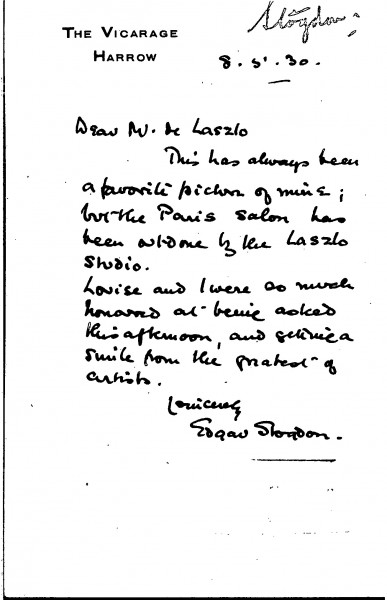 Stogdon
THE VICARAGE
HARROW
8.5.30.
Dear Mr. de Laszlo
This has always been
a favorite picture of mine;
but the Paris Salon has
been outdone by the Laszlo
Studio.
Louise and I were so much
honored at being asked
this afternoon, and getting a
smile from the greatest of
artists.
Sincerely
Edgar Stogdon.